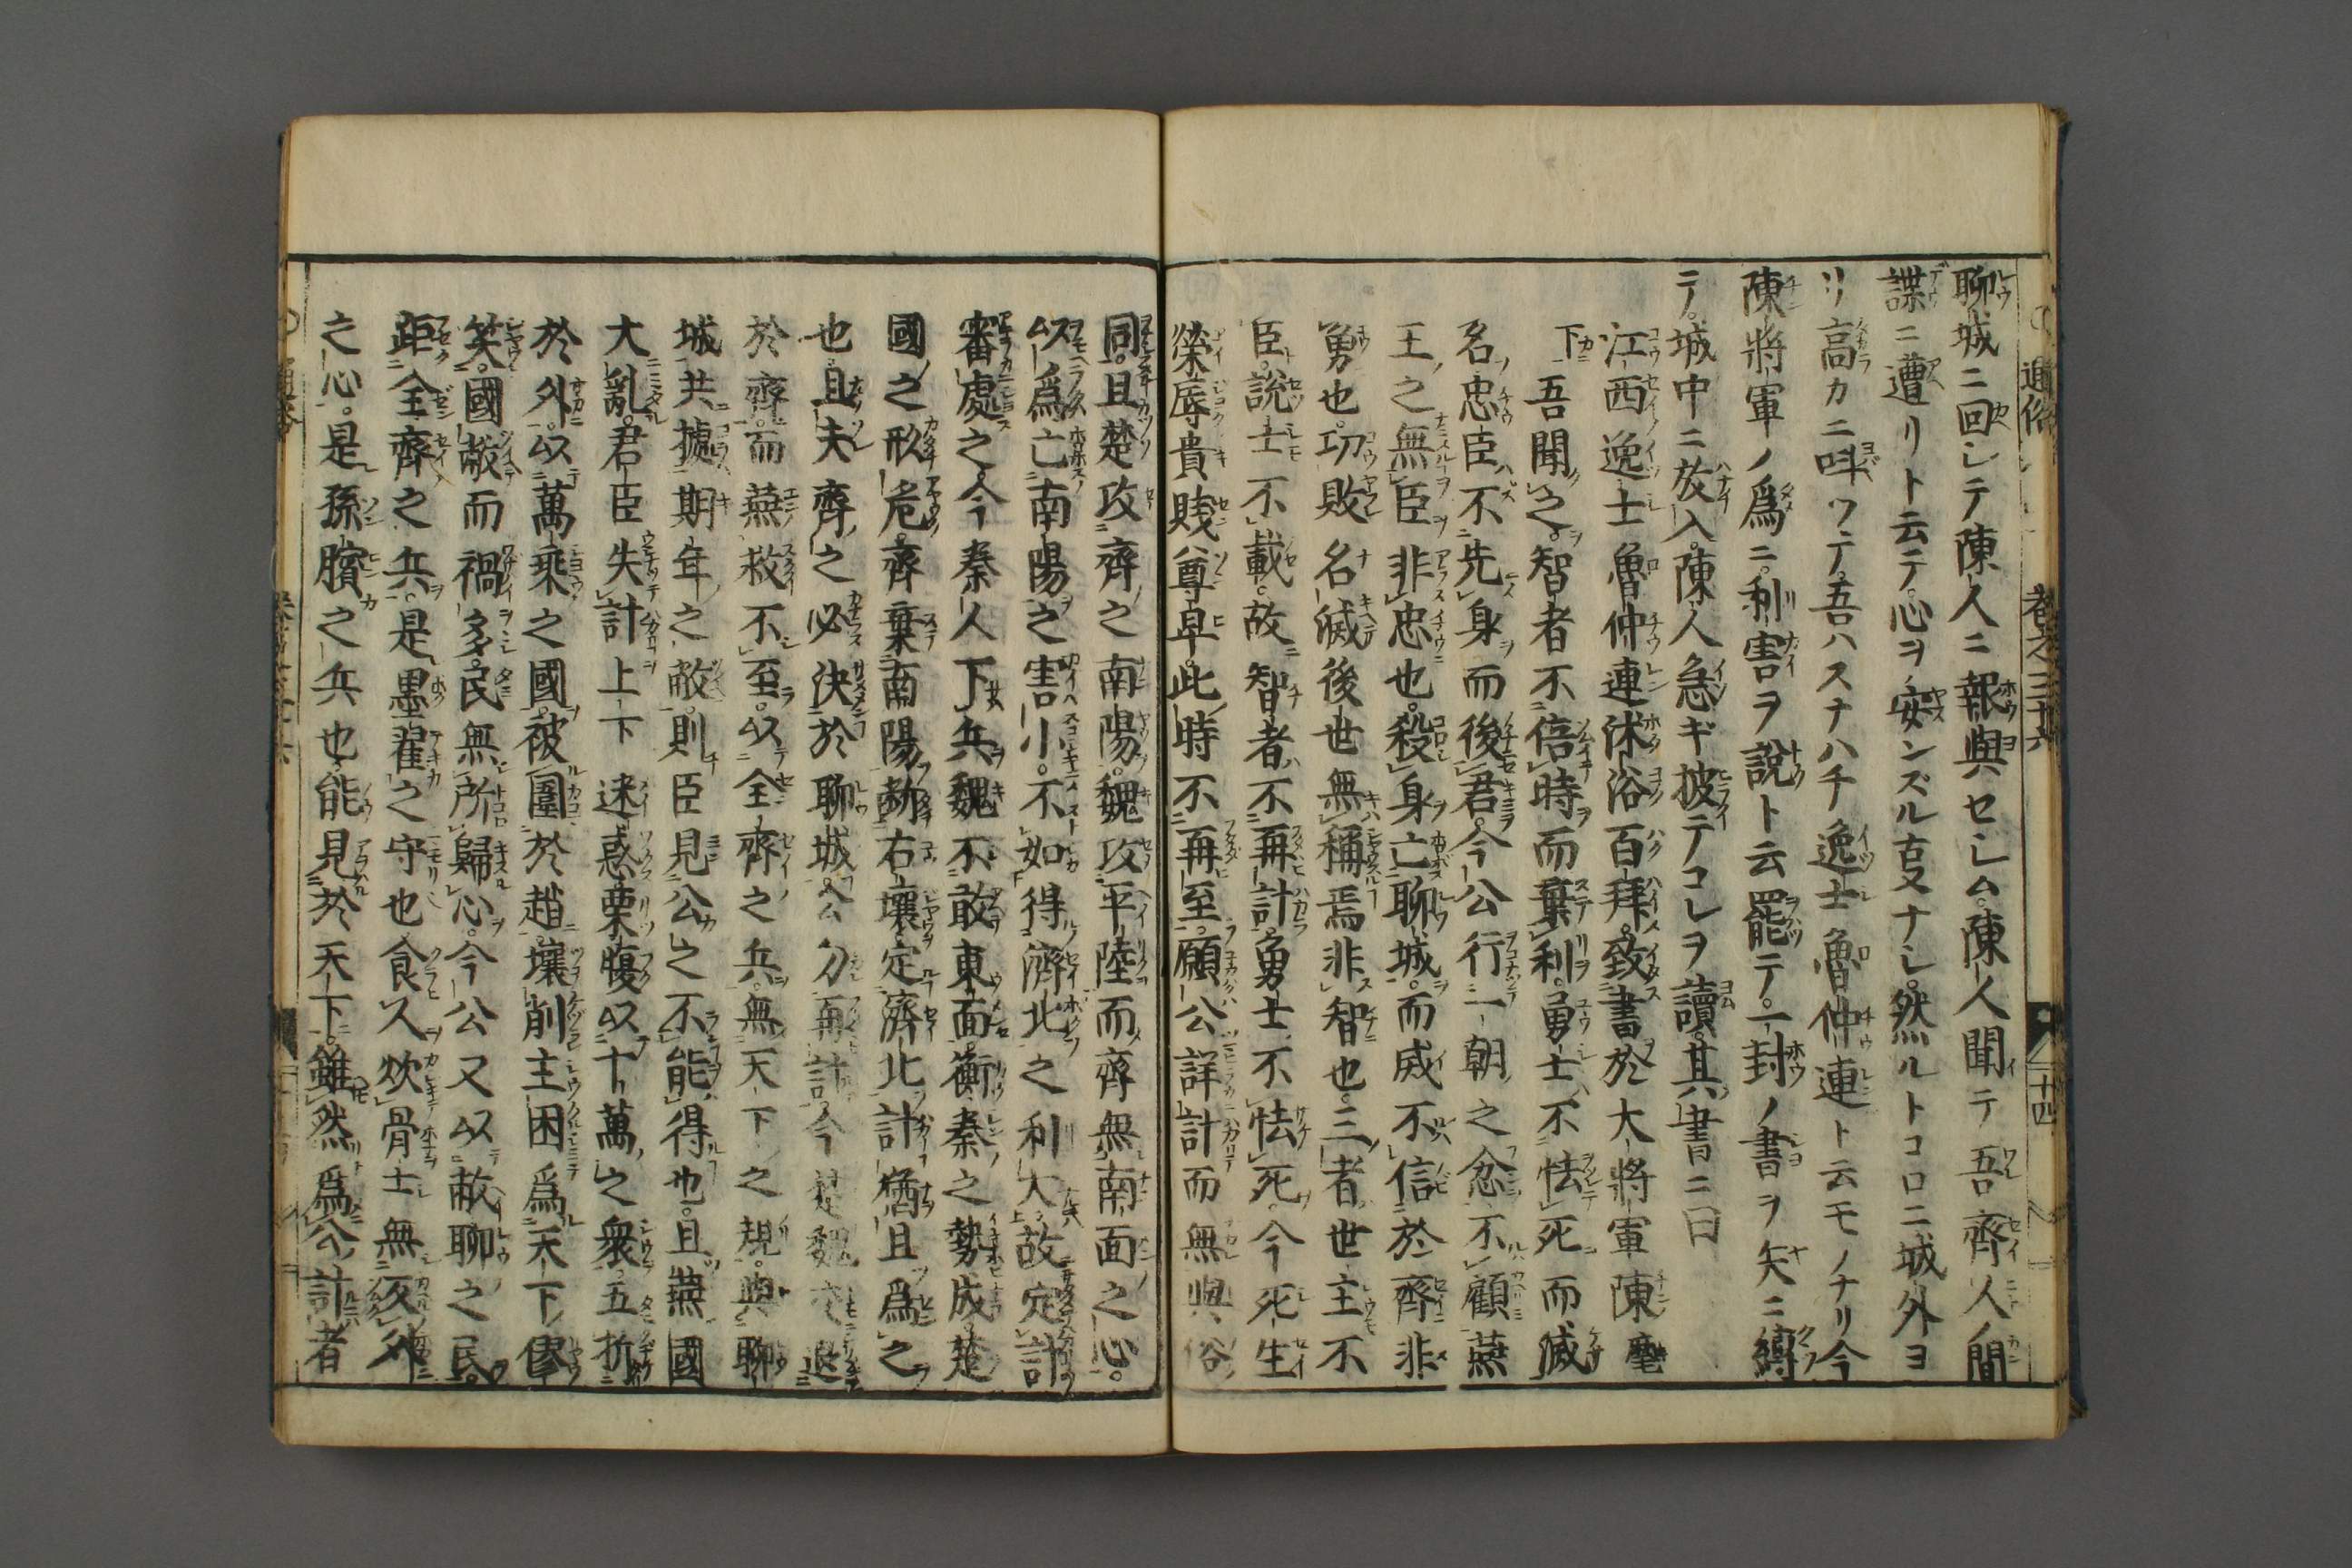 通俗 卷之三十六 二十四
聊城ニ回シテ陳人ニ報與セシム。陳人聞テ吾齊人ノ間
諜ニ遭リト云テ。心ヲ安ンズルヿナシ。然ルトコロニ城外ヨ
リ高カニ呌ワテ。吾ハスナハチ逸士魯仲連ト云モノナリ今
陳將軍ノ爲ニ。利害ヲ說ト云罷テ。一封ノ書ヲ矢ニ縛
テ。城中ニ放入。陳人急ギ披テコレヲ讀。其書ニ曰
江西逸士魯仲連沐浴百拜。致書於大將軍陳麾
下
吾聞之。智者不倍時而棄利。勇士不怯死而滅
名。忠臣不先身而後君。今公行一朝之忿不顧燕
王之無臣非忠也。殺身亡聊城。而威不信於齊非
勇也。功敗名滅後世無稱焉非智也。三者世主不
臣。說士不載。故智者不再計。勇士不怯死。今死生
榮辱貴賤尊卑。此時不再至。願公詳計而無與俗
同。且楚攻齊之南陽。魏攻平陸。而齊無南面之心。
以爲亡南陽之害小。不如得濟北之利大。故定計
審處之。今秦人下兵。魏不敢東面。衡秦之勢成。楚
國之形危。齊棄南陽。斷右壤。定濟北。計猶且爲之
也。且夫齊之必決於聊城。公勿再計。今楚魏交退
於齊。而燕救不至。以全齊之兵。無天下之規。與聊
城共據期年之敝。則臣見公之不能得也。且燕國
大亂。君臣失計上下迷惑栗腹以十萬之衆。五折
於外。以萬乘之國。被圍於趙。壤削主困。爲天下僇
笑。國敝而禍多。民無所歸心。今公又以敝聊之民
距全齊之兵。是墨翟之守也食人炊骨士無反外
之心。是孫臏之兵也。能見於天下。雖然。爲公計者